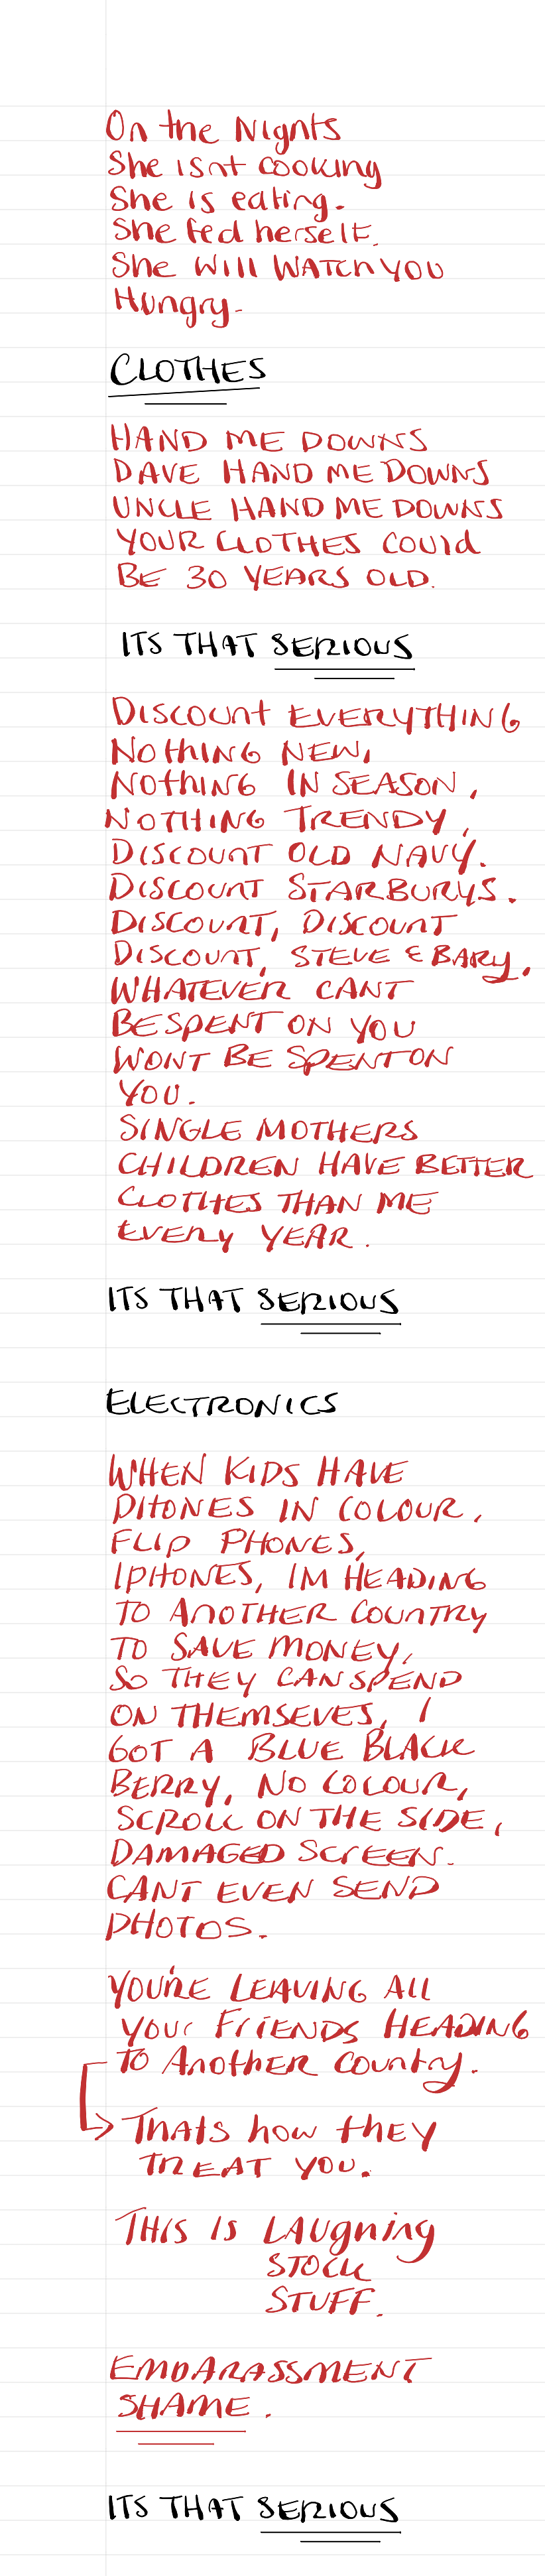 On the Nights
She isnt cooking
She is eating.
She fed herself.
She WILL WATCH YOU
Hungry.
CLOTHES
HAND ME DOWNS
DAVE HAND ME DOWNS
UNCLE HAND ME DOWNS
YOUR CLOTHES COULD
BE 30 YEARS OLD.
ITS THAT SERIOUS
DISCOUNT EVERYTHING
NOTHING NEW,
NOTHING IN SEASON,
NOTHING TRENDY,
DISCOUNT OLD NAVY.
DISCOUNT STARBURYS.
DISCOUNT, DISCOUNT
DISCOUNT, STEVE & BARY,
WHATEVER CANT
BE SPENT ON YOU
WONT BE SPENT ON
YOU.
SINGLE MOTHERS
CHILDREN HAVE BETTER
CLOTHES THAN ME
EVERY YEAR.
ITS THAT SERIOUS
ELECTRONICS
WHEN KIDS HAVE
PHONES IN COLOUR,
FLIP PHONES,
IPHONES, IM HEADING
TO ANOTHER COUNTRY
TO SAVE MONEY,
SO THEY CAN SPEND
ON THEMSEVES, I
GOT A BLUE BLACK
BERRY, NO COLOUR,
SCROLL ON THE SIDE,
DAMAGED SCREEN.
CANT EVEN SEND
PHOTOS.
YOU'RE LEAVING ALL
YOUR FRIENDS HEADING
TO ANOTHER COUNTRY.
THATS how they
TREAT YOU.
THIS IS LAUGHING
STOCK
STUFF.
EMBARASSMENT
SHAME.
ITS THAT SERIOUS